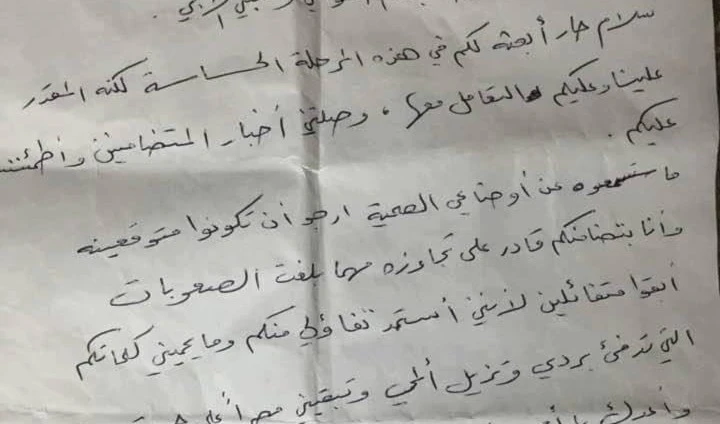 سلام حار أبعثه لكم في هذه المرحلة الحساسة لكنه المقدر
علينا وعليكم التعامل معها ، وصلتني أخبار المتضامنين وأطمئنت
عليكم .
ما ستسمعوه عن أوضاعي الصحية ارجو أن تكونوا متوقعينه
وأنا بتضامنكم قادر على تجاوزه مهما بلغت الصعوبات
أبقوا متفائلين لأنني أستمد تفاؤلي منكم وما يحييني كلماتكم
التي تدفئ بردي وتزيل ألمي وتبقيني مصراً على